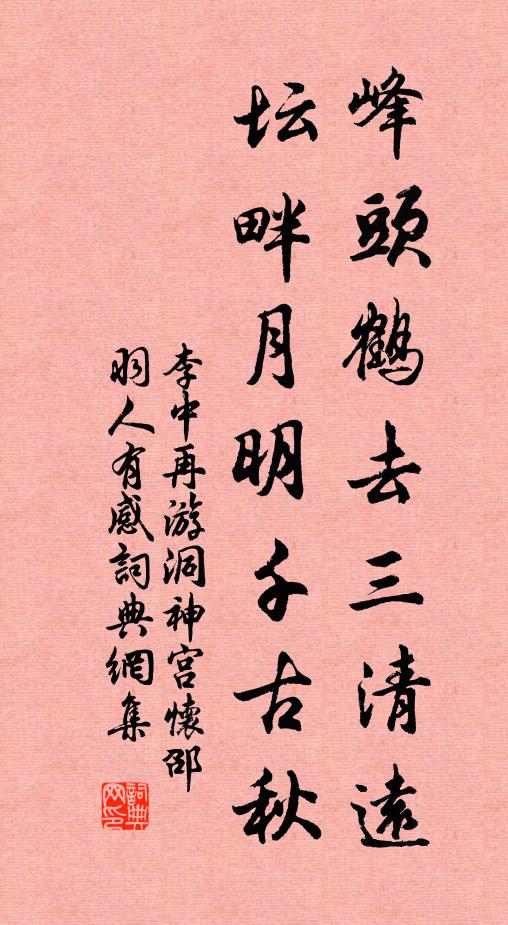 峰頭鶴去三清遠
坛畔月明千古秋
李中再游洞神宮懷邵
羽人有感詞典網集
詞典
网印